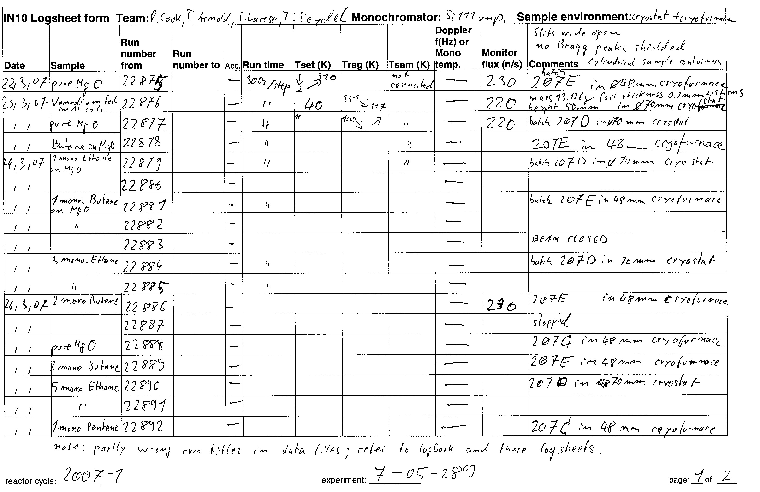 IN10 Logsheet form Team: R. Cook, T. Arnold, Monochromator: Si 111 Sample environment: cryostat + cryofurnace
Slits wide open
no Bragg peaks shielded
Cylindrical sample containers
Date Sample Run number from Run number to Acq. Run time Tset (K) Treg (K) Tsam (K) Doppler f(Hz) or Mono temp. Monitor flux (n/s) Comments
22,3,07 pure MgO 22875 — 300s/step not connected — 230 batch 207E in Ø48mm cryofurnace
23,3,07 Vanadium foil 22876 — " 40 — 220 foil thickness in Ø70mm cryostat
" pure MgO 22877 — " " — 220 batch 207D in Ø70mm cryostat
" Butane on MgO 22878 — " " — 207E in 48 cryofurnace
24,3,07 mono Ethane on MgO 22879 — " " — batch 207D in 70mm cryostat
" 22880 —
" 1 mono. Butane on MgO 22881 — " — batch 207E in 48mm cryofurnace
" " 22882 —
" 22883 — BEAM CLOSED
" mono. Ethane 22884 — " — batch 207D in 70mm cryostat
" " 22885 — "
24,3,07 2 mono Butane 22886 — 230 207E in 48mm cryofurnace
" 22887 — stopped
" pure MgO 22888 — 207G in 48mm cryofurnace
" mono Butane 22889 — 207E in 48mm cryofurnace
" 5 mono Ethane 22890 — 207D in 70mm cryostat
" " 22891 —
" 1 mono Pentane 22892 — 207C in 48 mm cryofurnace
note: partly wrong run titles in data files; refer to logbook and these logsheets.
reactor cycle: 2007-1 experiment: 7-05-280 page: 1 of 2